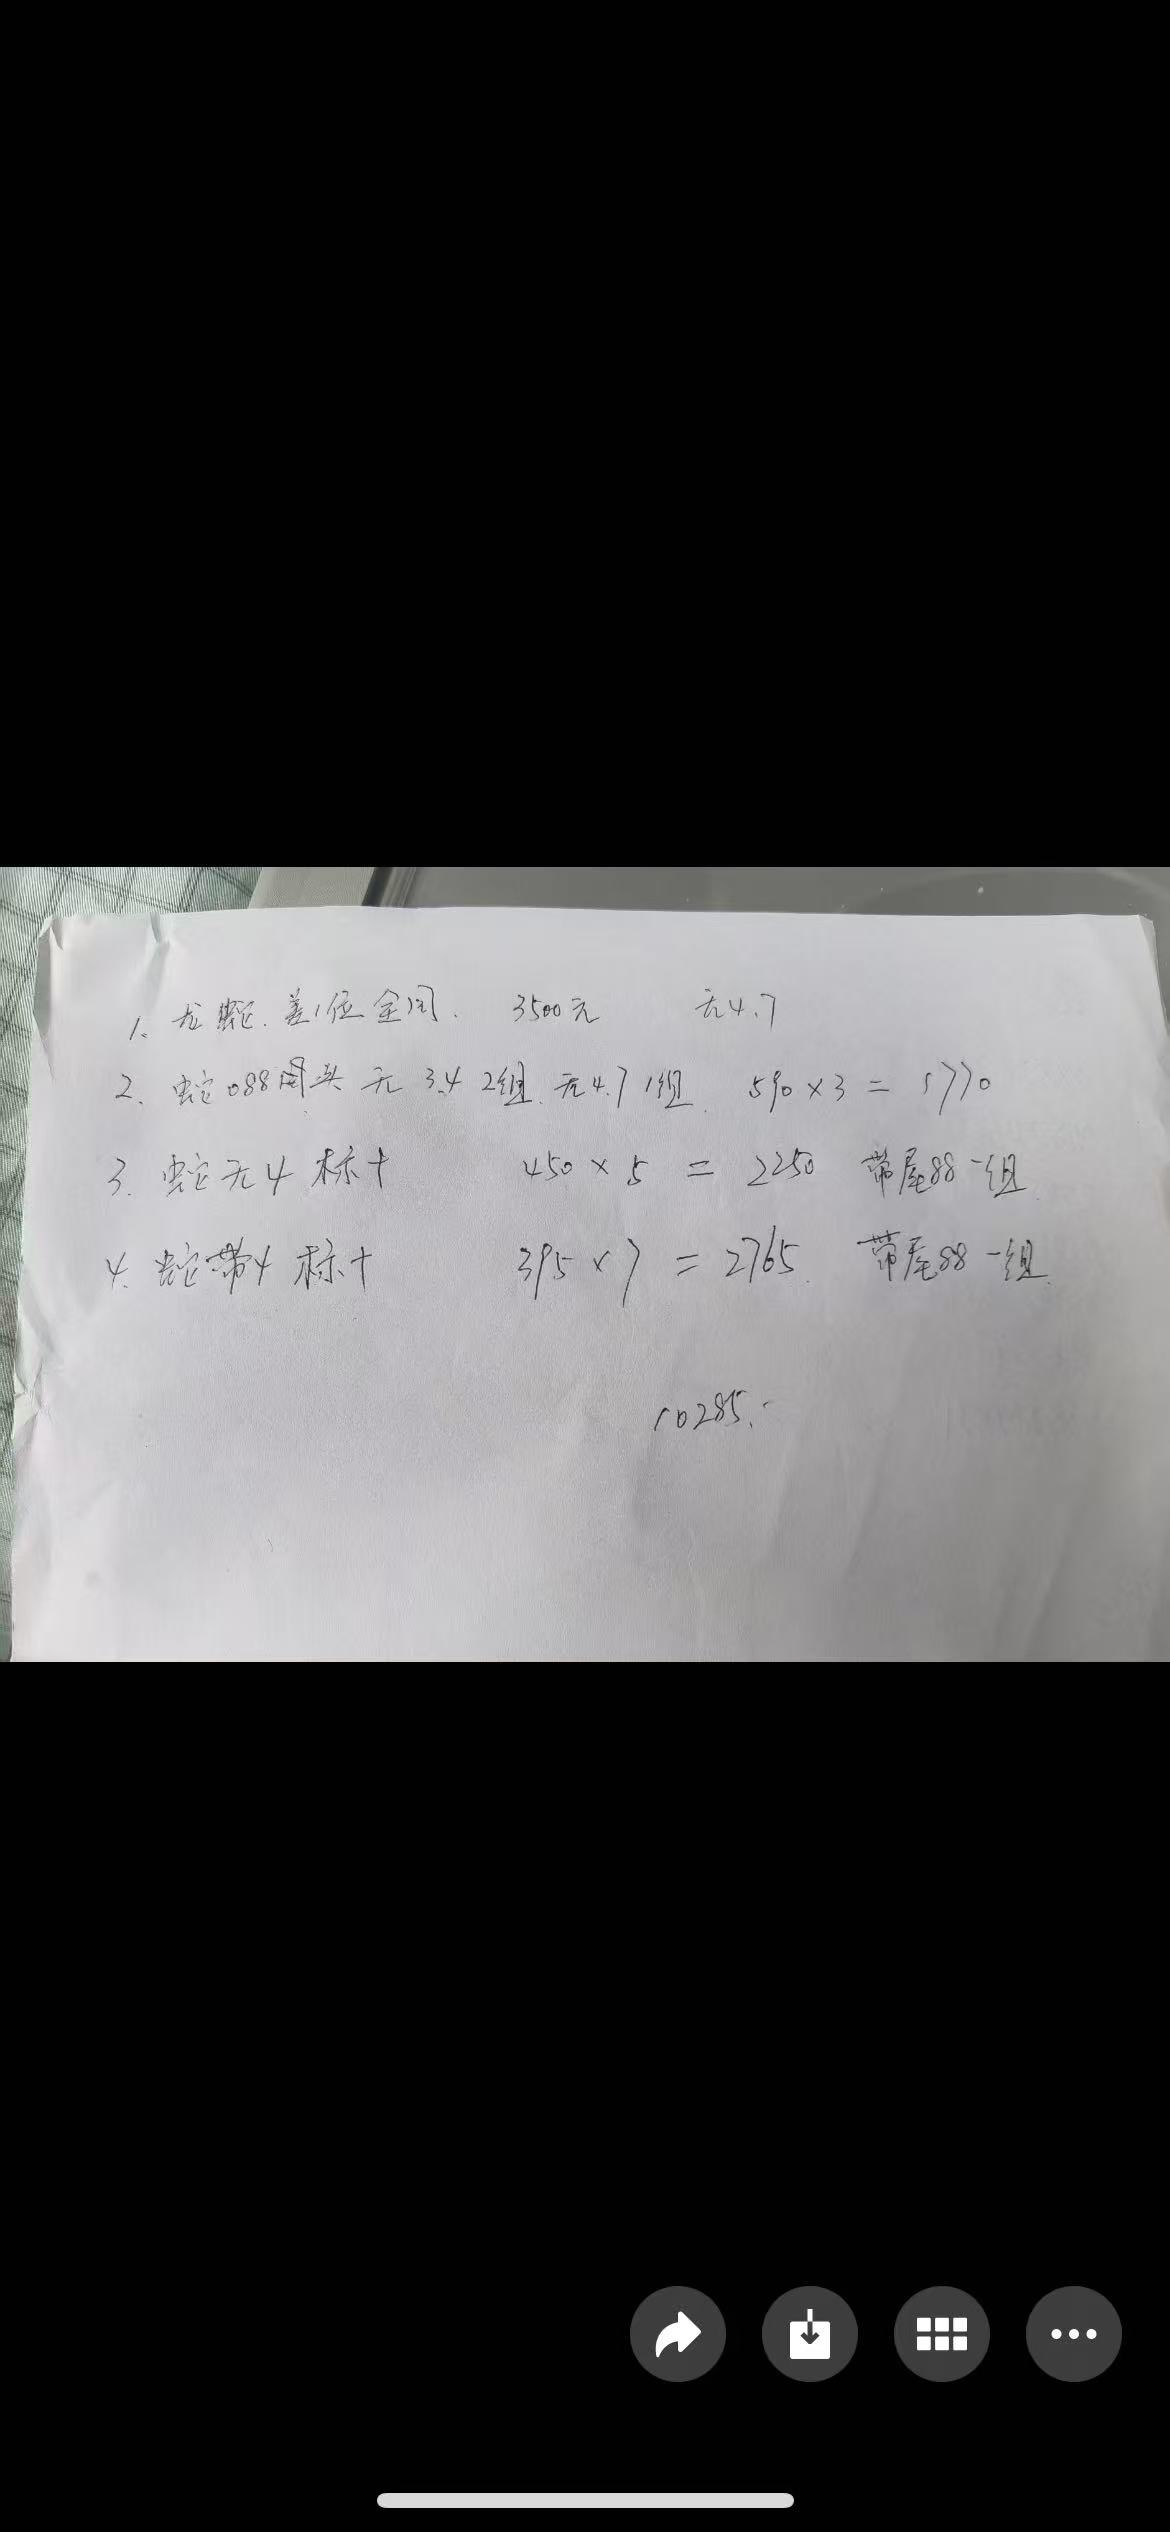 1、龙蛇.差1位全同. 3500元 无4.7
2、蛇088同头 无3.4 2组.无4.7 1组. 590×3=1770
3.蛇无4标十 450×5=2250 带尾88一组.
4.蛇带4标十 395×7=2765. 带尾88一组.
10285.-